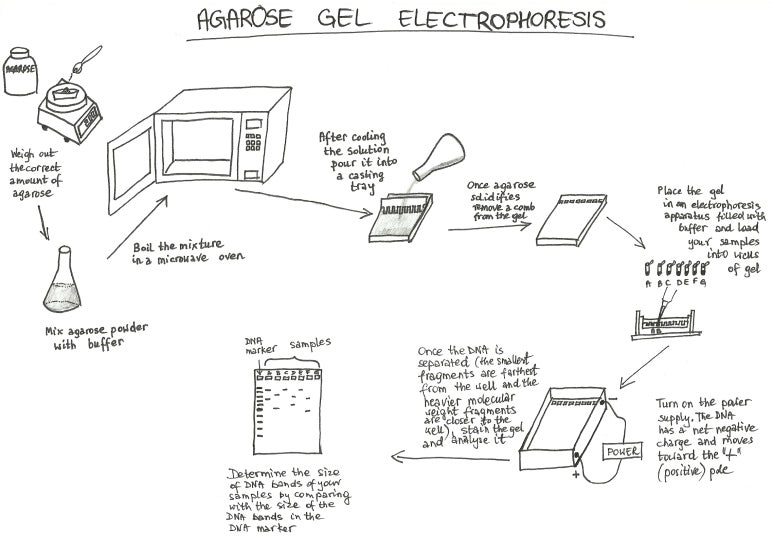 AGAROSE GEL ELECTROPHORESIS
AGAROSE
Weigh out
the correct
amount of
agarose
Mix agarose powder
with buffer
Boil the mixture
in a microwave oven
After cooling
the solution
pour it into
a casting
tray
Once agarose
solidifies
remove a comb
from the gel
Place the gel
in an electrophoresis
apparatus filled with
buffer and load
your samples
into wells
of gel
A B C D E F G
A B
Turn on the power
supply. The DNA
has a net negative
charge and moves
toward the "+"
(positive) pole
-
POWER
+
Once the DNA is
separated (the smallest
fragments are farthest
from the well and the
heavier molecular
weight fragments
are closer to the
well), stain the gel
and analyse it
DNA
marker samples
A B C D E F G
Determine the size
of DNA bands of your
samples by comparing
with the size of the
DNA bands in the
DNA marker